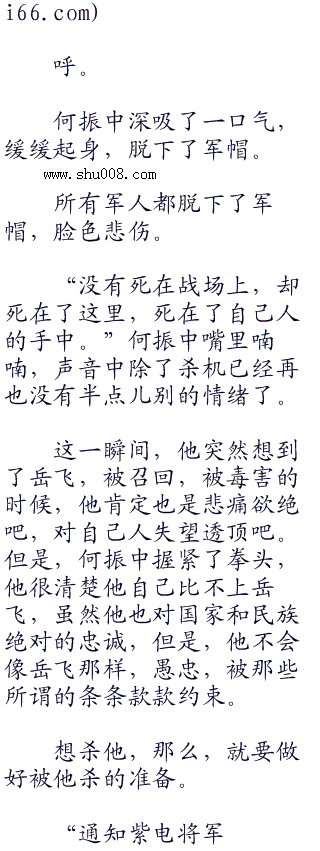 i66.com)
呼。
何振中深吸了一口气，
缓缓起身，脱下了军帽。
www.shu008.com
所有军人都脱下了军
帽，脸色悲伤。
“没有死在战场上，却
死在了这里，死在了自己人
的手中。”何振中嘴里喃
喃，声音中除了杀机已经再
也没有半点儿别的情绪了。
这一瞬间，他突然想到
了岳飞，被召回，被毒害的
时候，他肯定也是悲痛欲绝
吧，对自己人失望透顶吧。
但是，何振中握紧了拳头，
他很清楚他自己比不上岳
飞，虽然他也对国家和民族
绝对的忠诚，但是，他不会
像岳飞那样，愚忠，被那些
所谓的条条款款约束。
想杀他，那么，就要做
好被他杀的准备。
“通知紫电将军